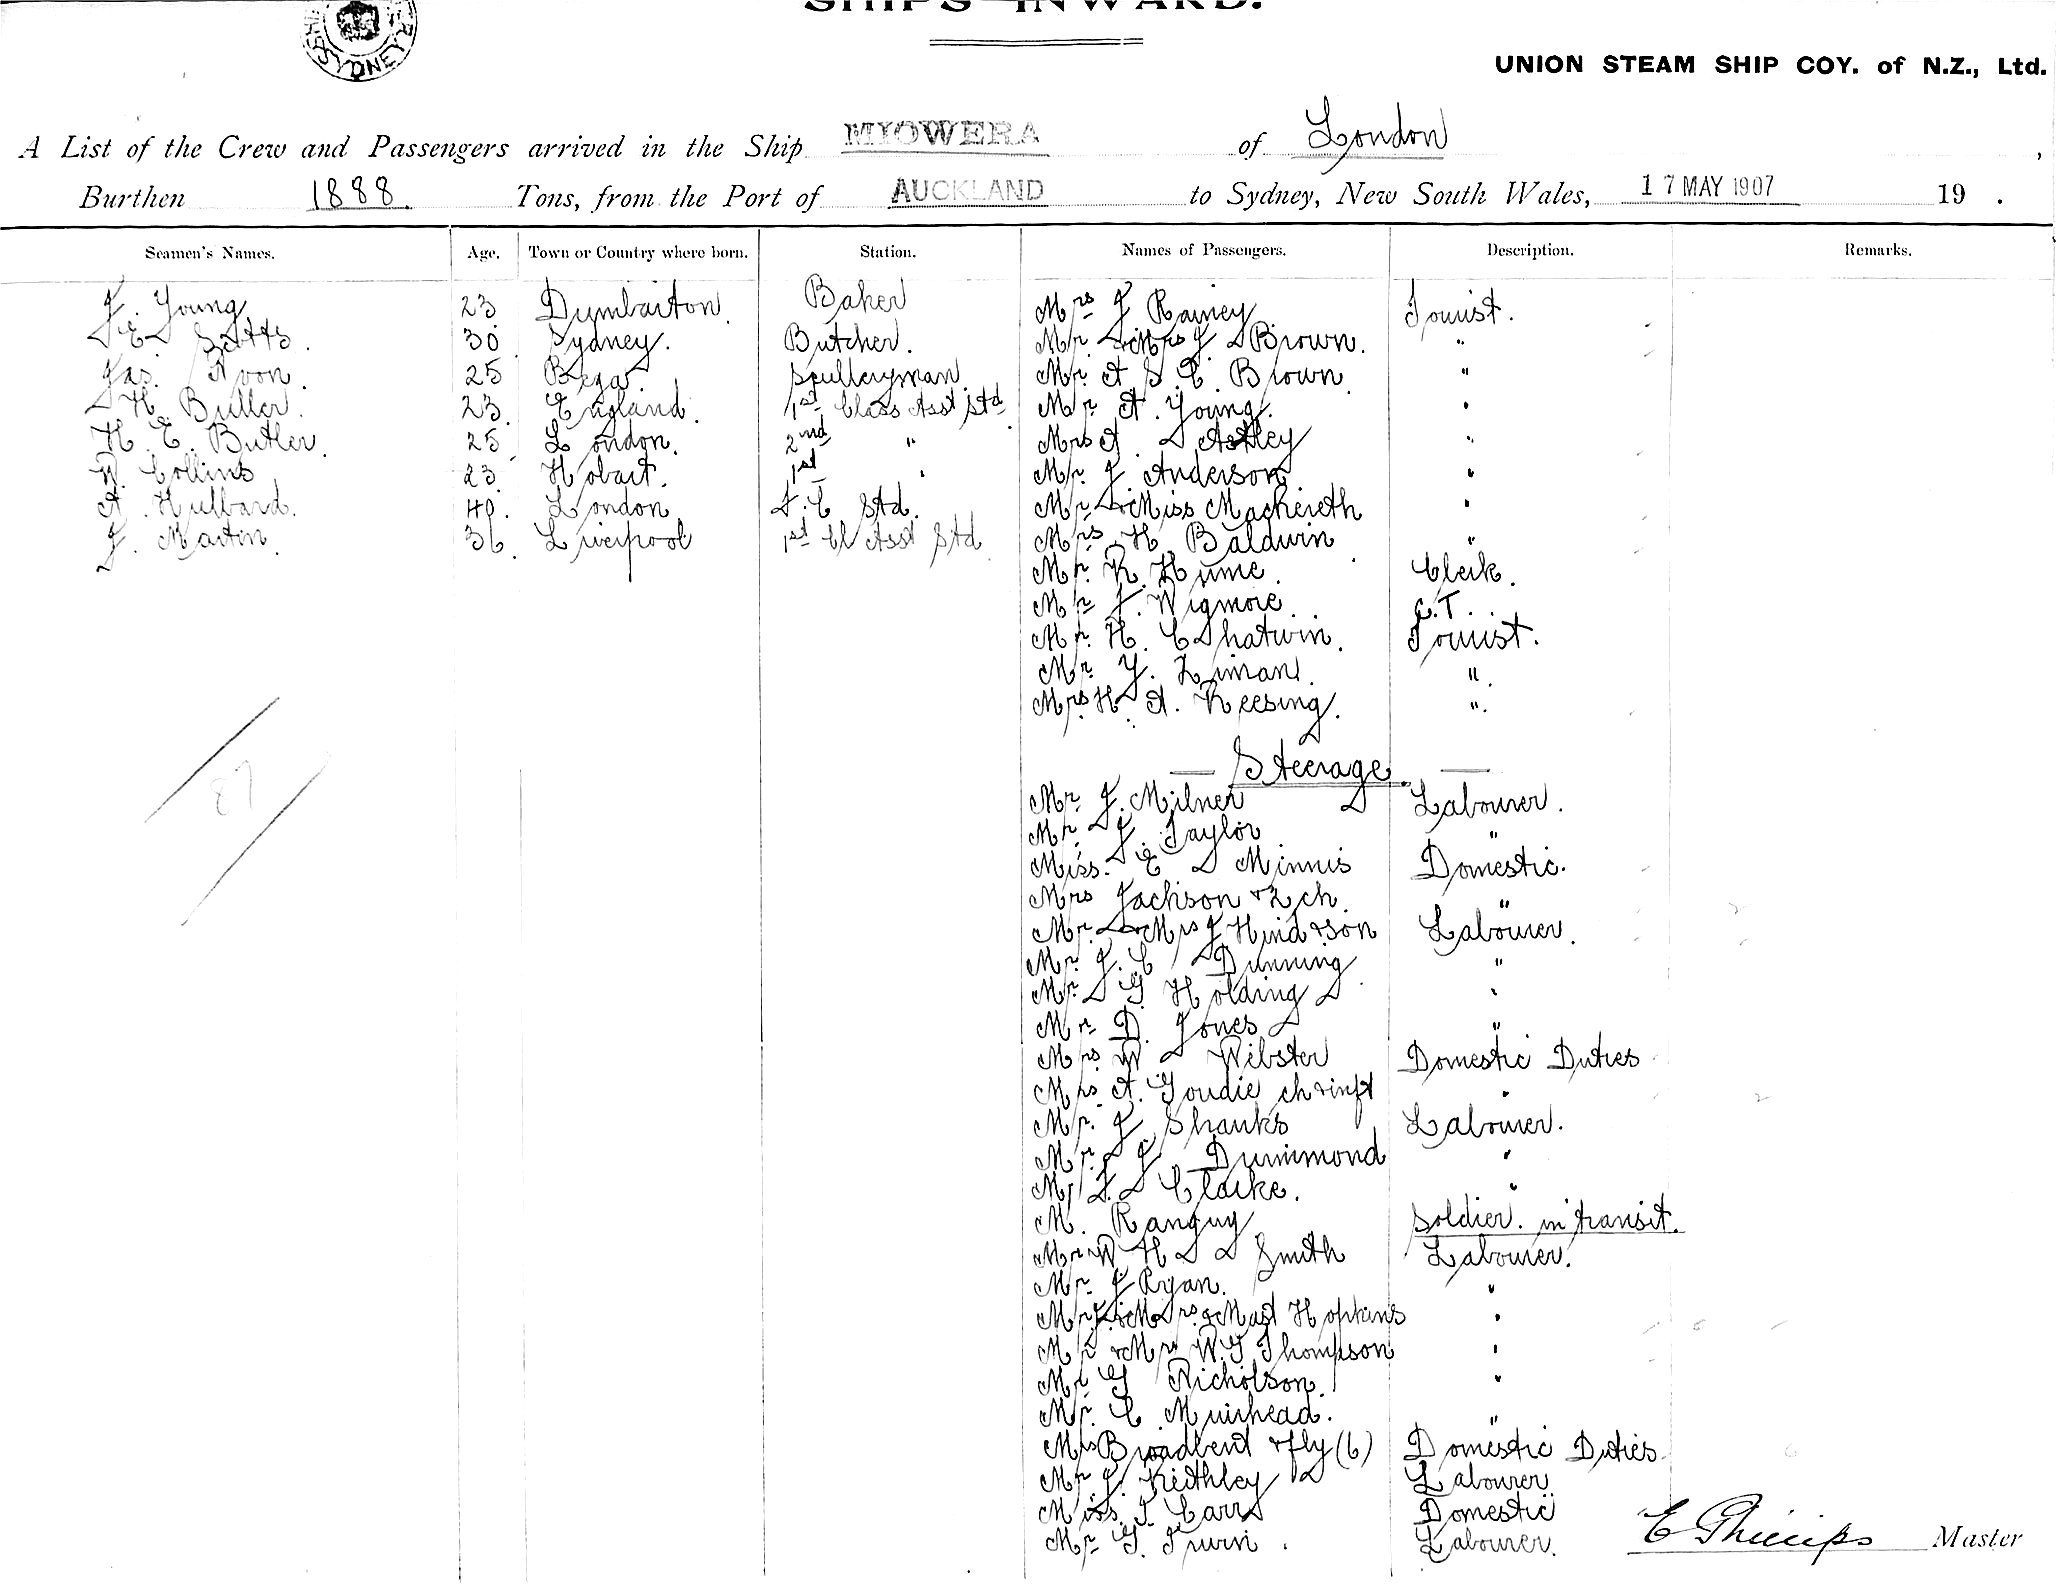 SHIPS INWARD.
SYDNEY
UNION STEAM SHIP COY. of N.Z., Ltd.
A List of the Crew and Passengers arrived in the Ship MIOWERA of London,
Burthen 1888. Tons, from the Port of AUCKLAND to Sydney, New South Wales, 17 MAY 1907 19 .
Seamen's Names. Age. Town or Country where born. Station. Names of Passengers. Description. Remarks.
J. Young 23 Dumbarton. Baker Mrs J Rainey Tourist.
30 Sydney. Butcher. Mr & Mrs J Brown. "
Jas. 25 Bega. Sculleryman Mr. A S. C. Brown "
H. Buller. 23. England. 1st Class Asst Std Mr A. Young. "
H. E. Butler. 25 London. 2nd " Mrs A Astley "
W. Collins 23. Hobart. 1st " Mr. J. Anderson "
A. Hulbard. 40. London S.C Std. Mr & Miss Mackereth "
J. Martin. 36. Liverpool 1st Cl Asst Std Mrs H. Baldwin "
Mr. R. Hume. Clerk.
Mr J. Wigmore. C.T.
Mr. H. Chatwin. Tourist.
Mr Y. Liman. ".
Mrs H. A. Keesing. ".
87
— Steerage. —
Mr J. Milner Labourer.
Mr. J. Taylor "
Miss. E Minnis Domestic.
Mrs Jackson & 2 ch. "
Mr. & Mrs J Hind & son Labourer.
Mr. J. C Dunning "
Mr. G Holding "
Mr D. Jones "
Mrs W Webster Domestic Duties
Mrs A. Goudie ch & inft "
Mr. J. Shanks Labourer.
Mr. J. Drummond "
Mr Clarke. "
M. Ranguy Soldier. in transit.
Mr W H Smith Labourer.
Mr. J Ryan. "
Mr J. & Mrs & Mast Hopkins "
Mr & Mrs W.G Thompson "
Mr G Nicholson. "
Mr. C Muirhead. "
Mrs Broadbent & fly (6) Domestic Duties
Mr J. Keithley Labourer
Miss. Carr Domestic
Mr G. Irwin. Labourer.
E Phillips Master